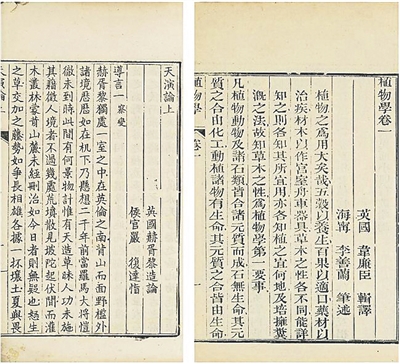 植物學卷一
英國 韋廉臣 輯譯
海寧 李善蘭 筆述
植物之爲用大矣哉五穀以養生百果以適口藥材以
治疾材木以作宮室舟車器具草木之性各不同能詳
知之則各知其所宜用亦各知植之宜何地及培擁糞
漑之法故知草木之性爲植物學第一要事
凡植物動物及諸石類皆合諸元質而成石無生命其元
質之合由化工動植諸物有生命其元質之合皆由生命
植物學 卷一
天演論上
英國赫胥黎造論
侯官嚴 復達恉
導言一 察變
赫胥黎獨處一室之中在英倫之南背山而面野檻外
諸境歷歷如在机下乃懸想二千年前當羅馬大將愷
徹未到時此間有何景物計惟有天造草昧人功未施
其藉徵人境者不過幾處荒墳散見坡陀起伏間而灌
木叢林蒙茸山麓未經刪治如今日者則無疑也怒生
之草交加之藤勢如爭長相雄各據一抔壤土夏與畏
天演論上